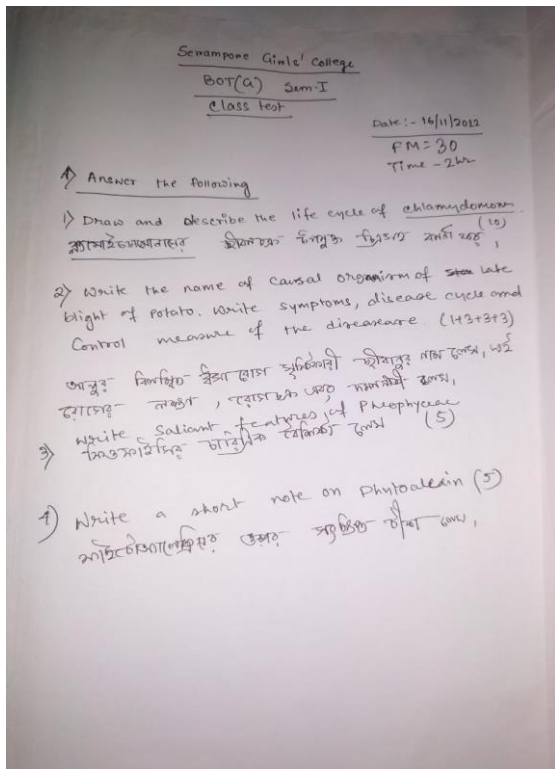 Serampore Girls' College
BOT(G) Sem-I
Class test
Date:- 16/11/2022
FM=30
Time - 2hr
1) Answer the following
1) Draw and describe the life cycle of chlamydomon
জীবনচক্র চিত্রসহ বর্ণনা কর, (10)
2) Write the name of causal organism of late
blight of potato. Write symptoms, disease cycle and
Control measure of the diseaseare. (1+3+3+3)
আলুর বিলম্বিত ধ্বসা রোগ সৃষ্টিকারী জীবাণুর নাম লেখ, এই
রোগের লক্ষণ, রোগচক্র এবং লেখ,
3) Write Saliant features of Pheophyceae
বৈশিষ্ট্য লেখ (5)
4) Write a short note on Phytoalexin (5)
ওপর সংক্ষিপ্ত টীকা লেখ,